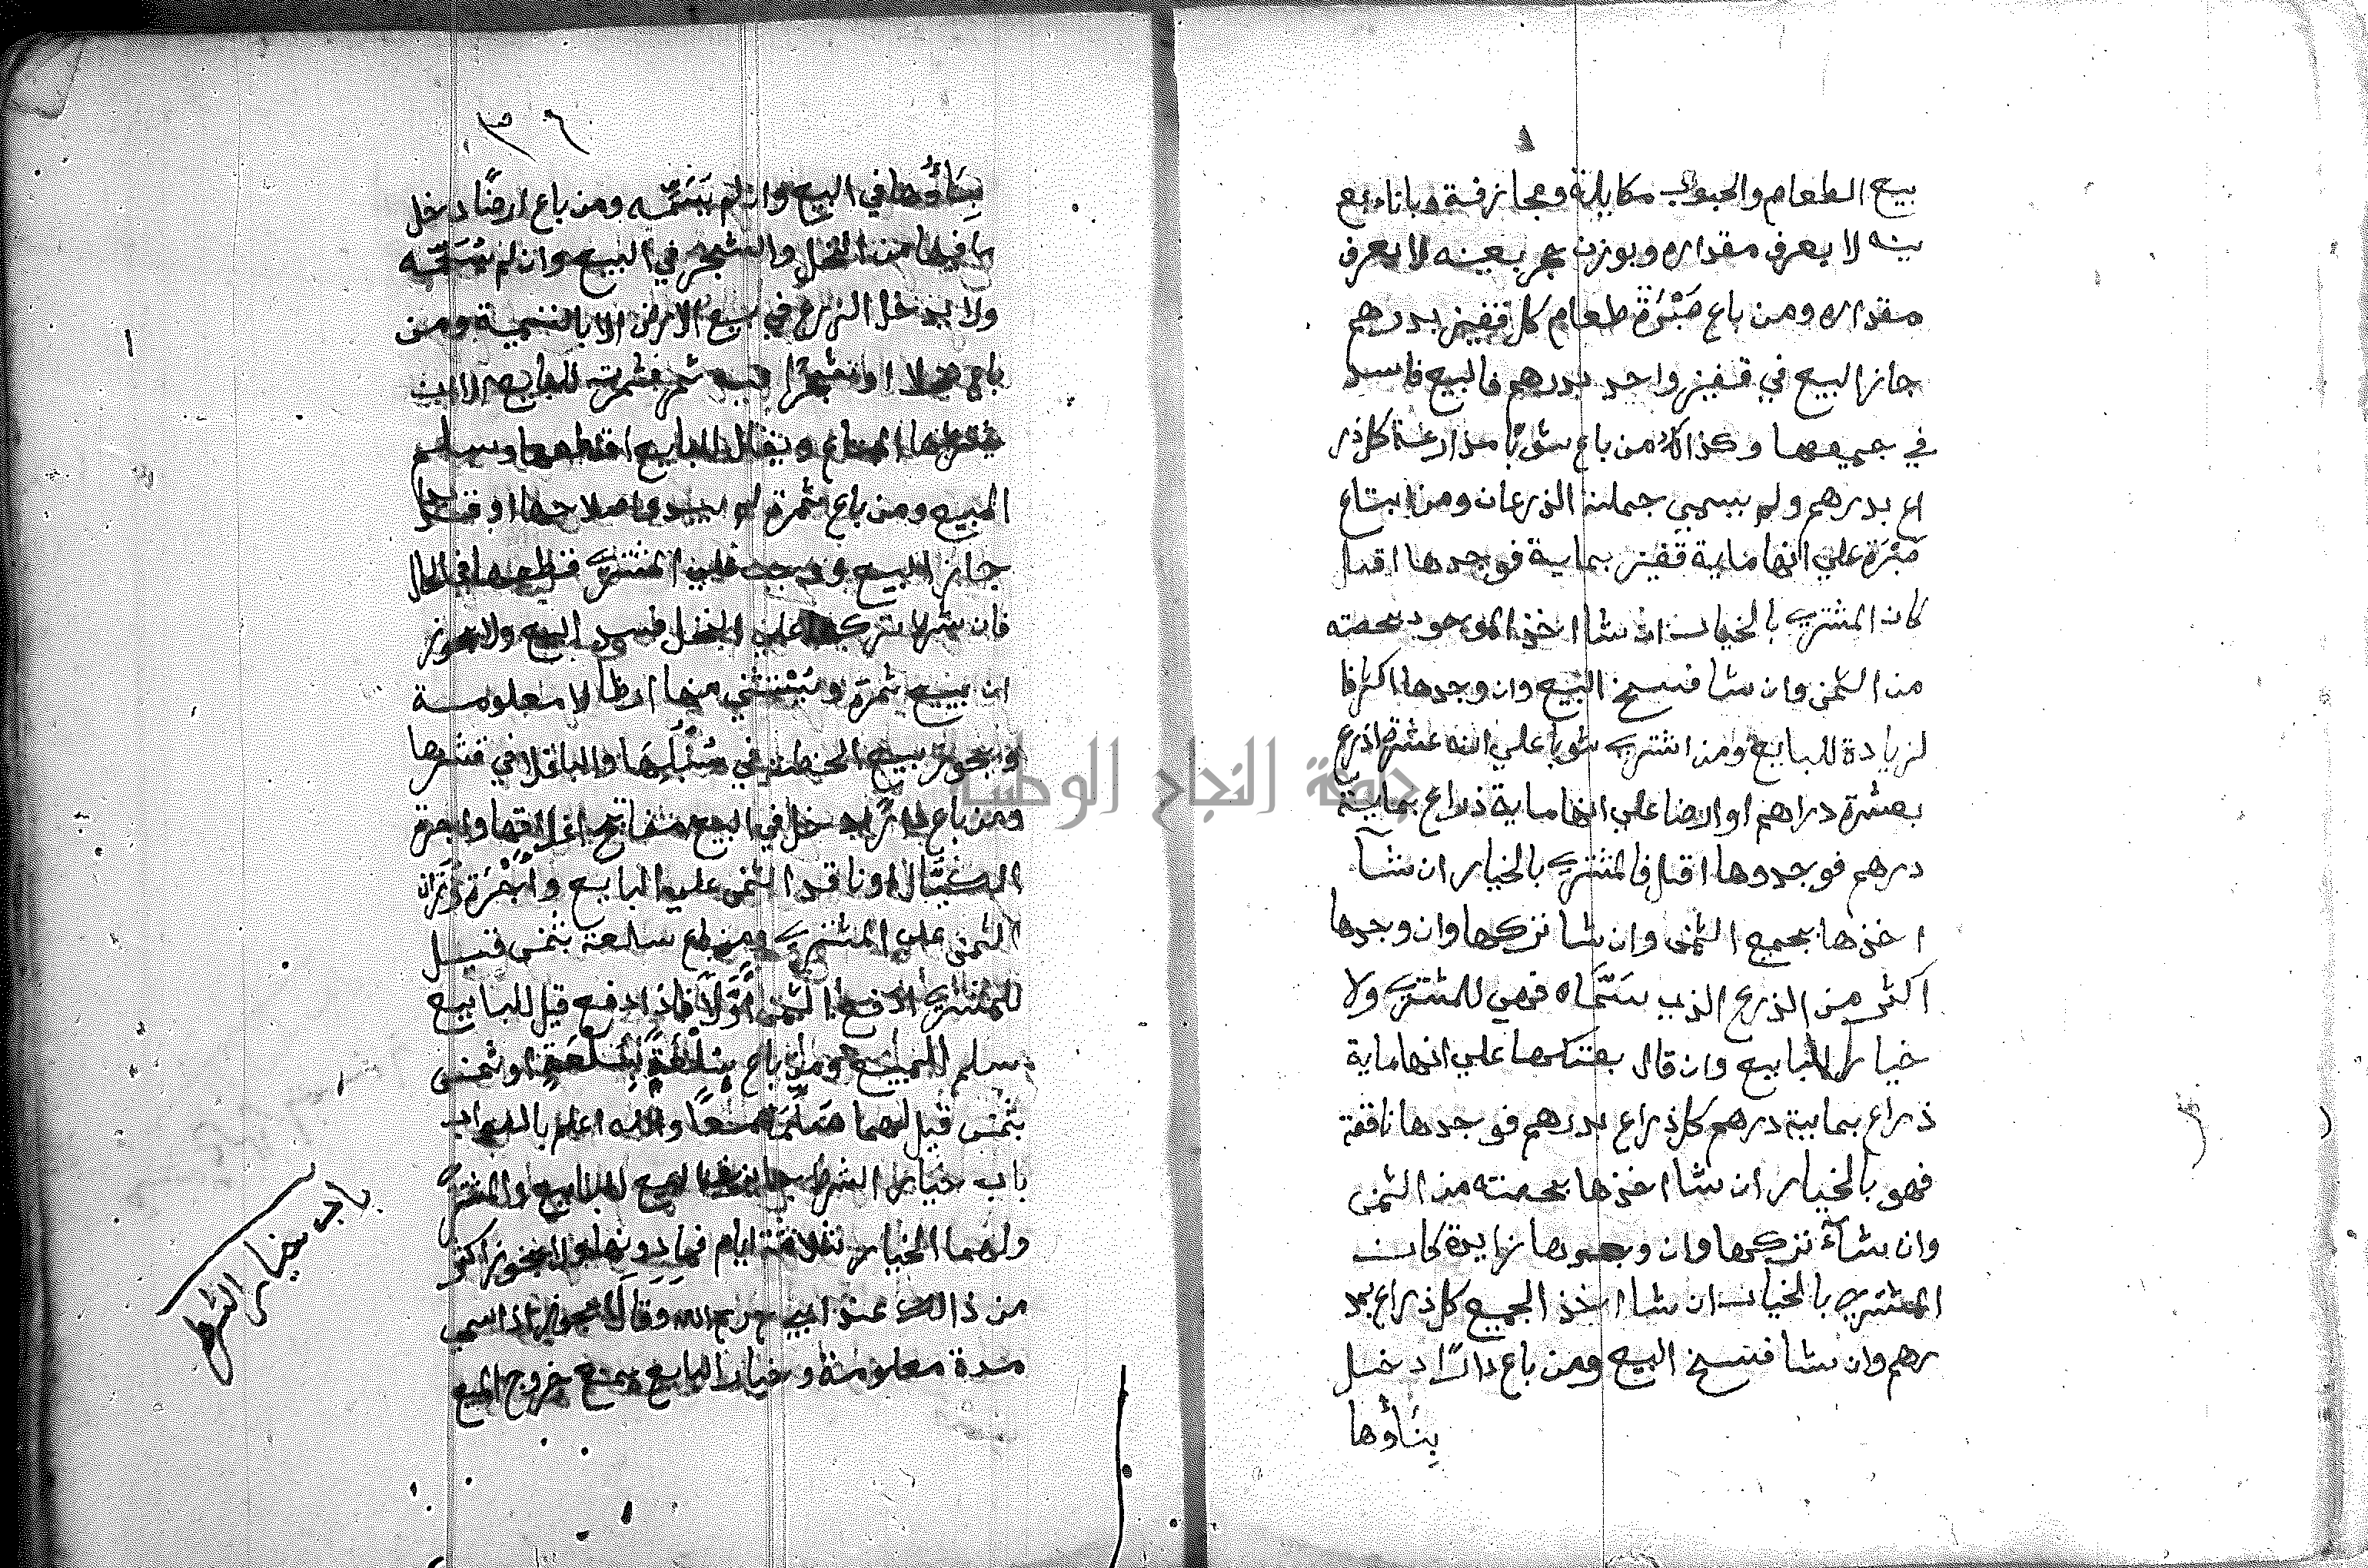 بيع الطعام والحبوب مكايلة ومجازفة وباناء بع
ينه لا يعرف مقداره وبوزن حجر بعينه لا يعرف
مقداره ومن باع صُبْرَة طعام كل قفيز بدرهم
جاز البيع في قفيز واحد بدرهم فالبيع فاسد
في جميعها وكذالك من باع ثوبًا مذارعة كل ذر
اع بدرهم ولم يسمي جملة الذرعان ومن ابتاع
صُبْرَة علي انها ماية قفيز بماية فوجدها اقل
كان المشتري بالخيار ان شا اخذ الموجود بحصته
من الثمن وان شا فسخ البيع وان وجدها اكثر فا
لزيادة للبايع ومن اشترى ثوبا علي انه عشرة اذرع
بعشرة دراهم او ارضا علي انها ماية ذراع بماية
درهم فوجدوها اقل فالمشتري بالخيار ان شآ
اخذها بجميع الثمن وان شا تركها وان وجدها
اكثر من الذرع الذي سَمَّاه فهي للمشتري ولا
خيار للبايع وان قال بعتكها علي انها ماية
ذراع بماية درهم كل ذراع بدرهم فوجدها ناقصة
فهو بالخيار ان شا اخذها بحصته من الثمن
وان شآء تركها وان وجدها زايدة كان
المشتري بالخيار ان شا اخذ الجميع كل ذراع بد
رهم وان شا فسخ البيع ومن باع دارًا دخل
بِنَاؤُها
٣٦
بِنَاؤُها في البيع وان لم يُسَمِّه ومن باع ارضًا دخل
ما فيها من النخل والشجر في البيع وان لم يُسَمِّه
ولا يدخل الزرع في بيع الارض الا بالتسمية ومن
باع نخلا او شجرًا فيه ثمر فثمرته للبايع الا ان
يشترطها المبتاع ويقال للبايع اقطعها وسلم
المبيع ومن باع ثمرة لم يبدوا صلاحها او قد بدا
جاز البيع ووجب علي المشتري قطعها في الحال
فان شرط تركها علي النخل فسد البيع ولا يجوز
ان يبيع ثمرة ويَسْتثني منها ارطالا معلومة
ويجوز بيع الحنطة في سُنْبُلِهَا والباقلا في قشرها
ومن باع دارًا دخل في البيع مفاتيح اغلاقها واجرة
الكَيَّال وناقد الثمن علي البايع وأُجْرَة وَزَّان
الثمن علي المشتري ومن باع سلعة بثمن قيل
للمشتري ادفع الثمن أوَّلًا فاذا دفع قيل للبايع
سلم المبيع ومن باع سِلْعَةً بِسِلْعَةٍ او ثمن
بثمن قيل لهما سَلِّمَا معًا والله اعلم بالصواب
باب خيار الشرط جايز في البيع للبايع والمشتري
ولهما الخيار ثلاثة ايام فما دونها ولا يجوز اكثر
من ذالك عند ابي ح رحم الله وقالا يجوز اذا سمي
مدة معلومة وخيار البايع يمنع خروج المبيع
باب خيار الشرط
جامعة النجاح الوطنية